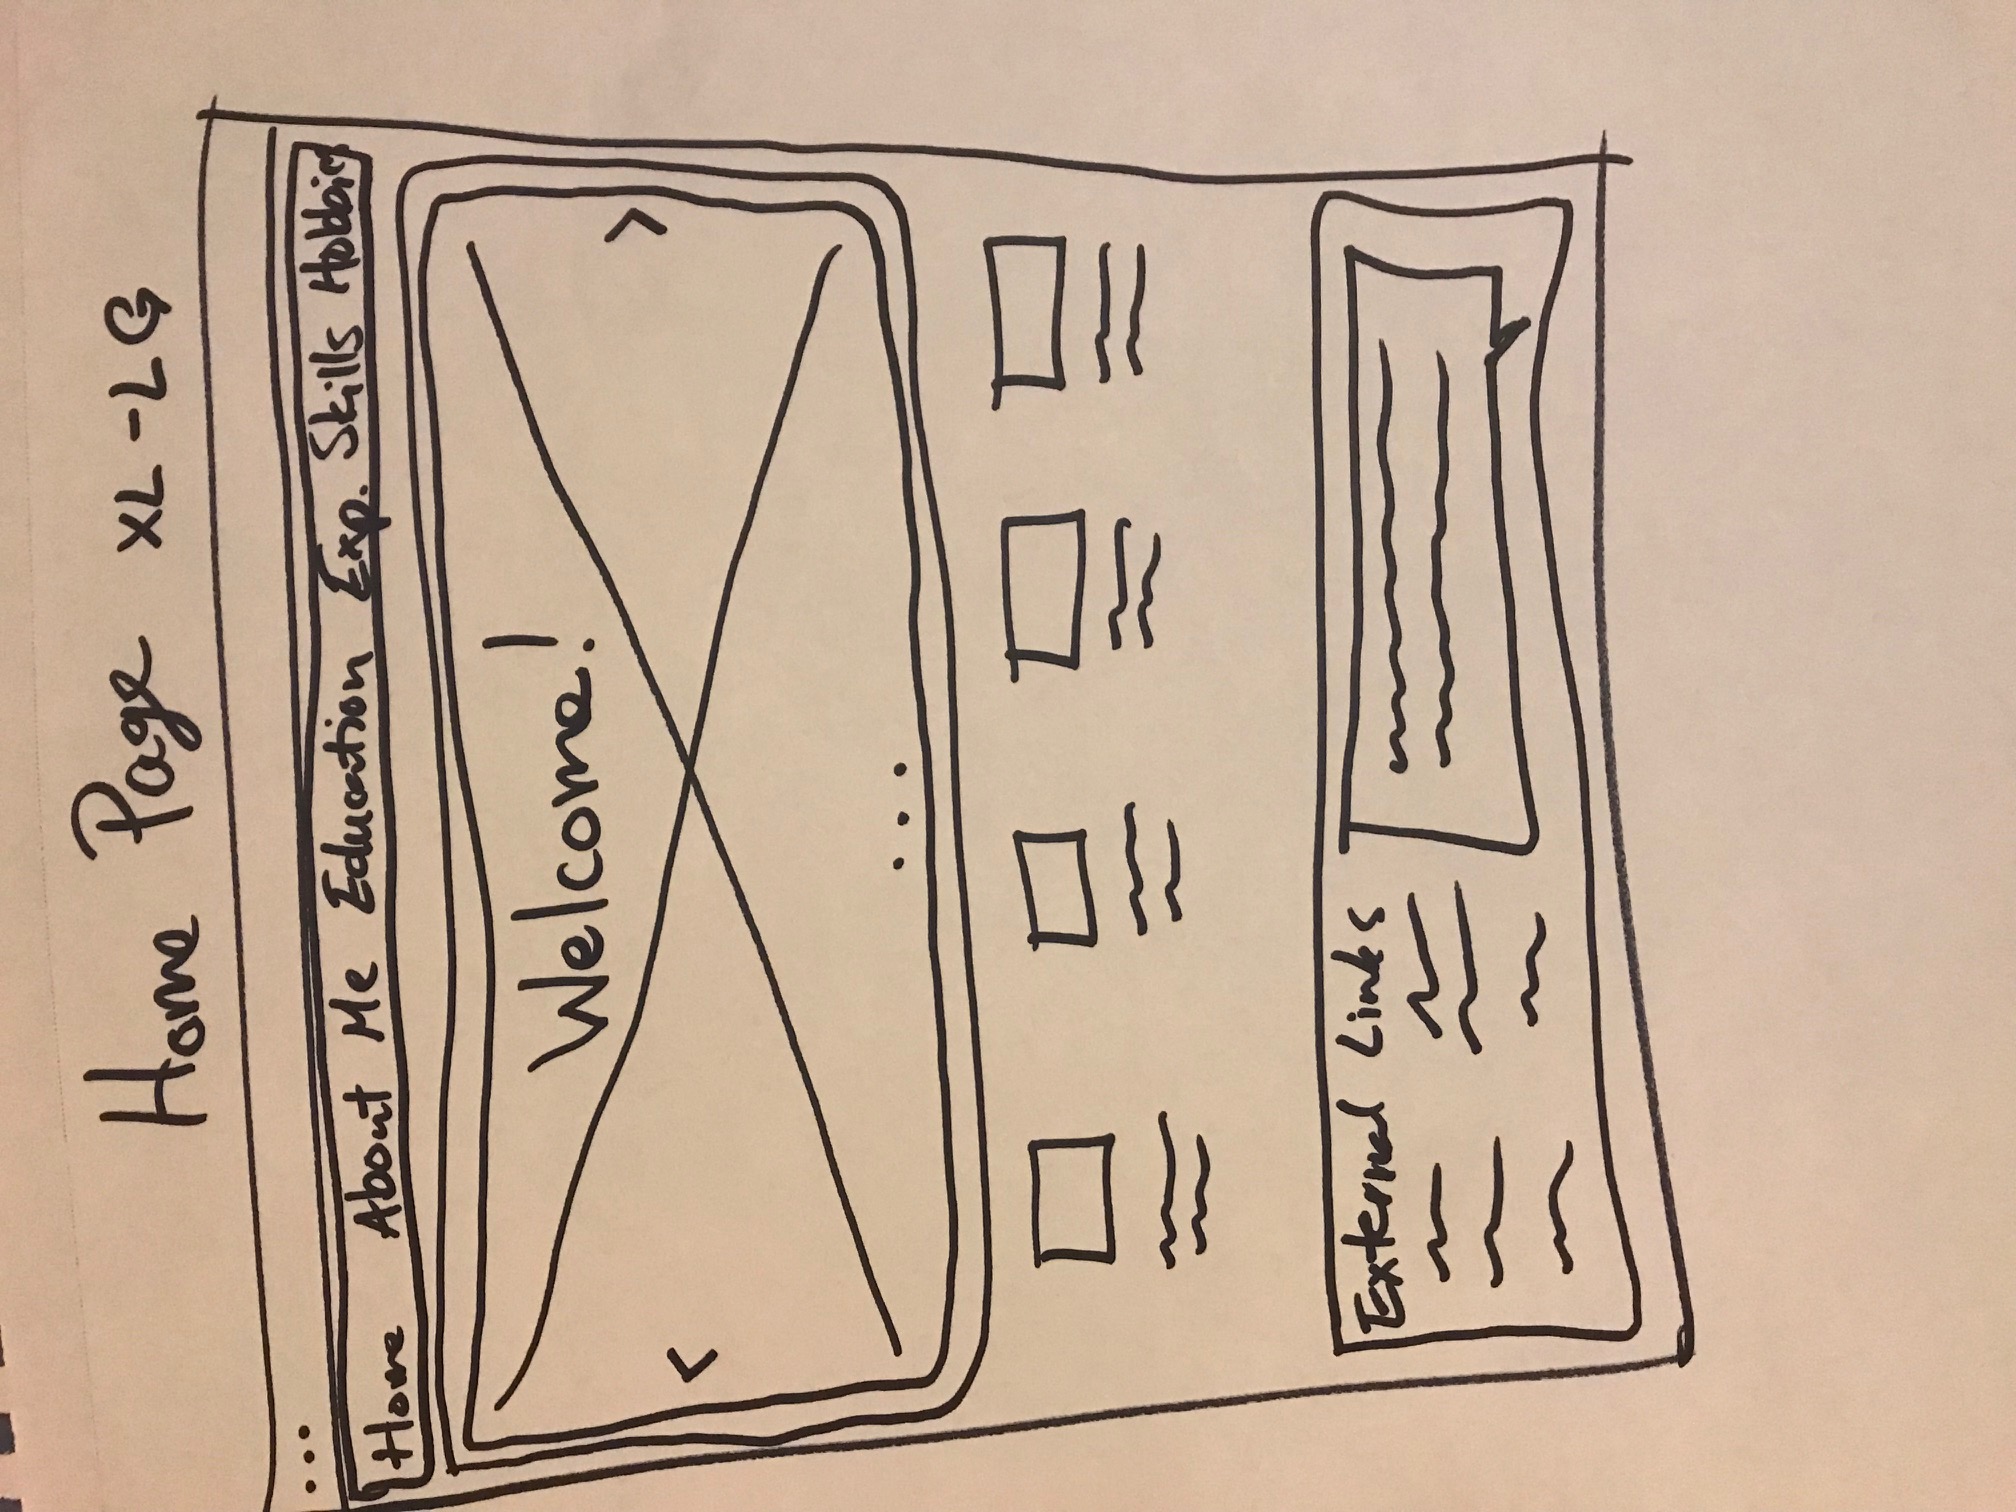 Home Page XL-LG
Home About Me Education Exp. Skills Hobbies
Welcome!
< >
External Links